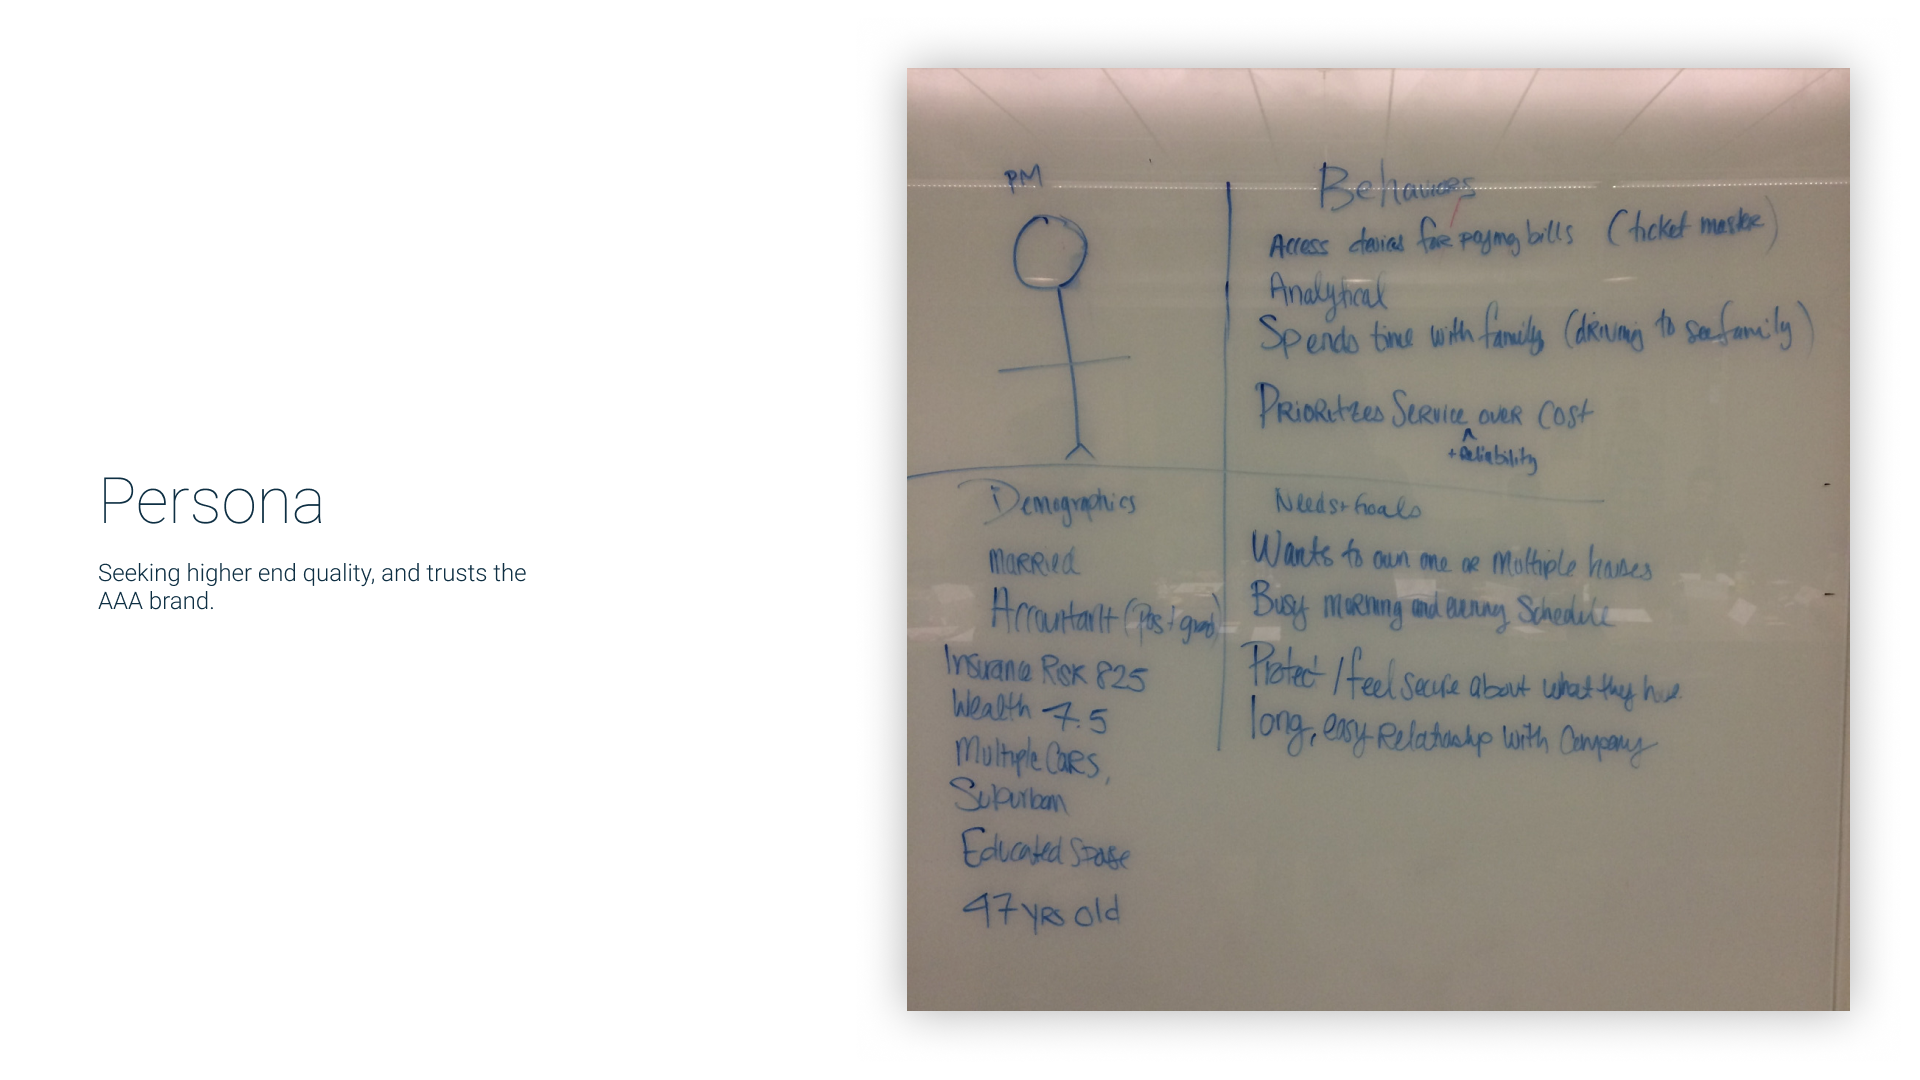 Persona
Seeking higher end quality, and trusts the
AAA brand.
PM
Behaviors
Access devices for paying bills (ticket master)
Analytical
Spends time with family (driving to see family)
Prioritzes Service over cost
^
+Reliability
Demographics
Married
Accountant (Post grad)
Insurance Risk 825
Wealth 7.5
Multiple Cars,
Suburban
Educated Spouse
47 yrs old
Needs + Goals
Wants to own one or multiple houses
Busy morning and evening Schedule
Protect / feel secure about what they have
long, easy relationship with Company